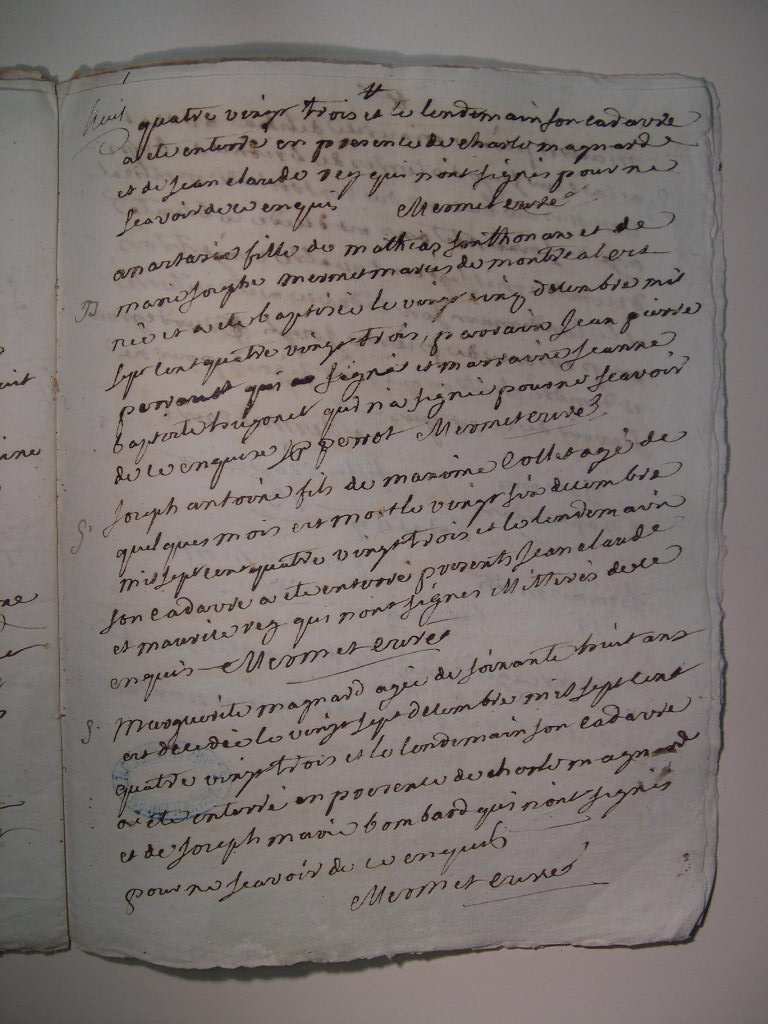 quatre vingt trois et le lendemain son cadavre
a ete enterré en presence de charle magnard
et de Jean claude rey qui n'ont signés pour ne
scavoir de ce enquis Mermet curé
anastasie fille de mathias Jonthonax et de
marie Josephe mermet mariés de montreal est
B née et a ete baptisée le vingt cinq decembre mil
sept cent quatre vingt trois, parrain Jean pierre
perraut qui a signé et marraine Jeanne
baptiste hugonet qui n'a signée pour ne scavoir
de ce enquise JP perrot Mermet curé
Joseph antoine fils de maxime Collet agé de
S. quelques mois est mort le vingt six decembre
mil sept cent quatre vingt trois et le lendemain
son cadavre a ete enterré presents Jean claude
et maurice rey qui n'ont signés illitérés de ce
enquis Mermet curé
S. Marguerite magnard agée de soixante huit ans
est decedée le vingt sept decembre mil sept cent
quatre vingt trois et le lendemain son cadavre
a ete enterré en presence de charle magnard
et de Joseph marie bombard qui n'ont signés
pour ne scavoir de ce enquis
Mermet curé